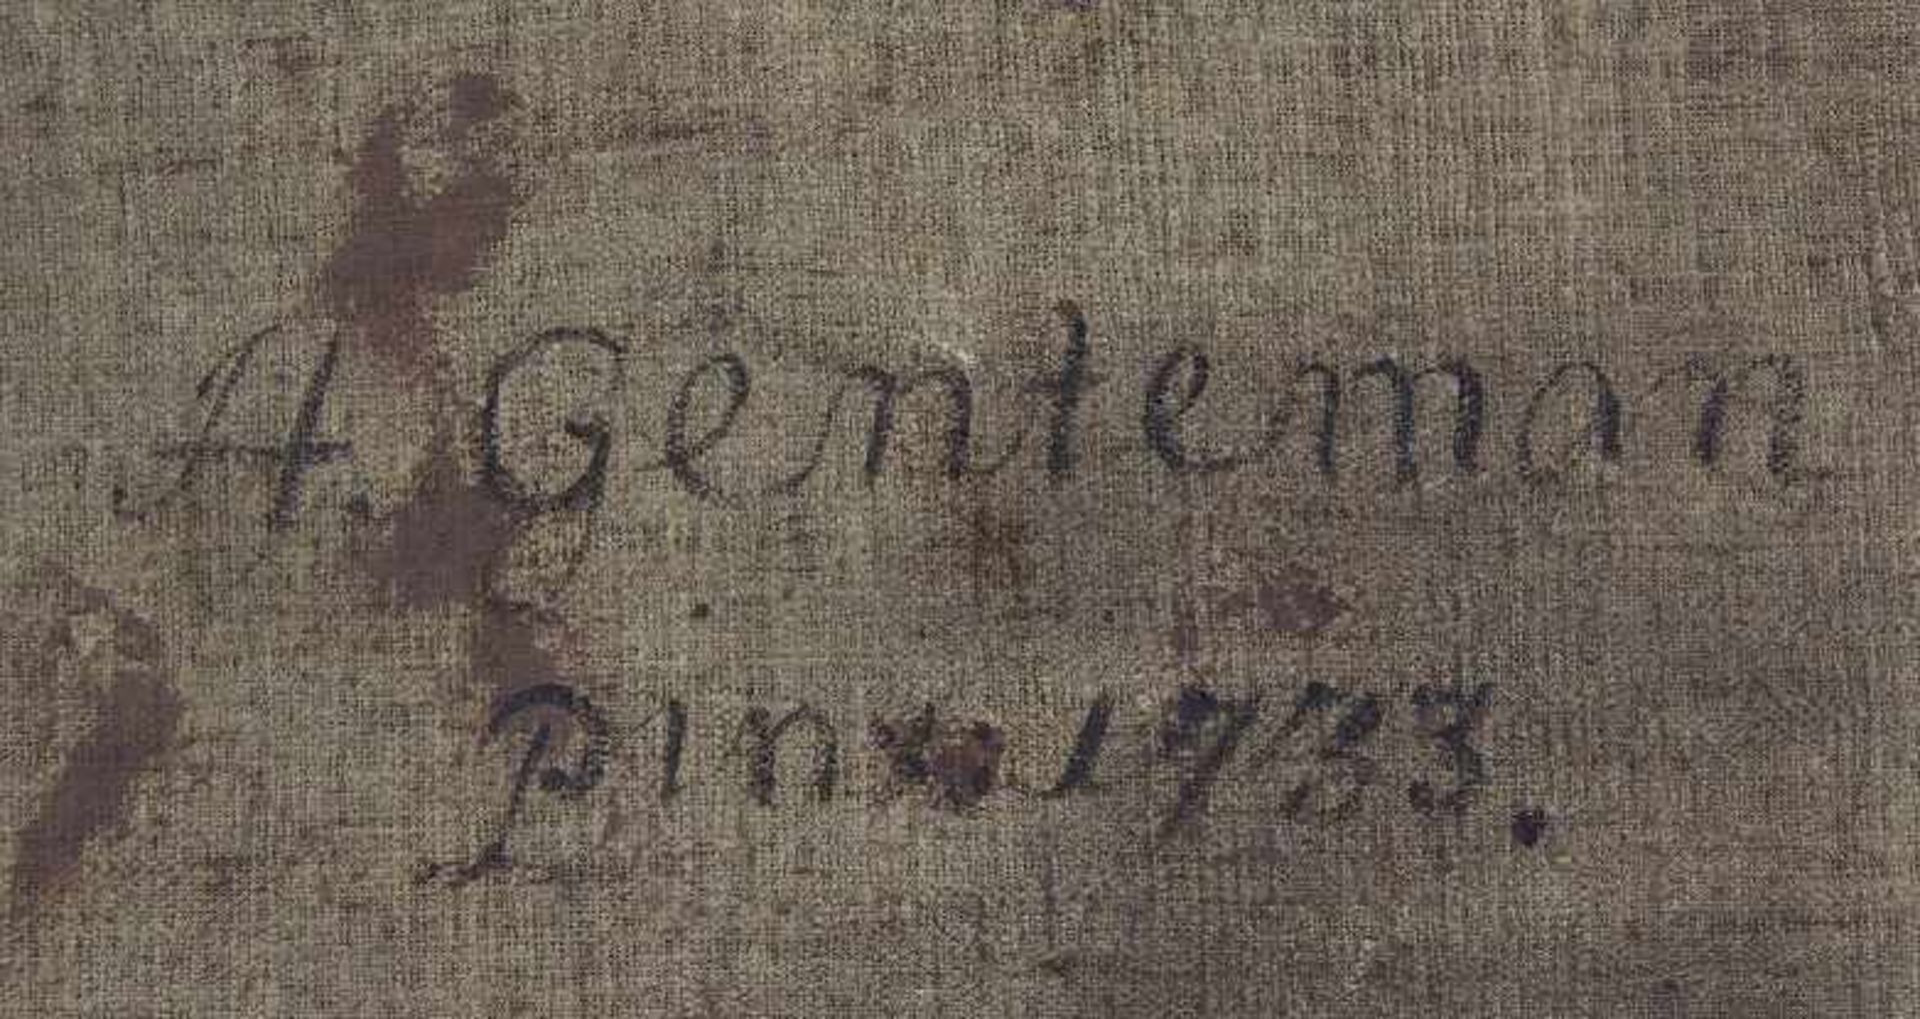 A. Genteman
pinx 1783.